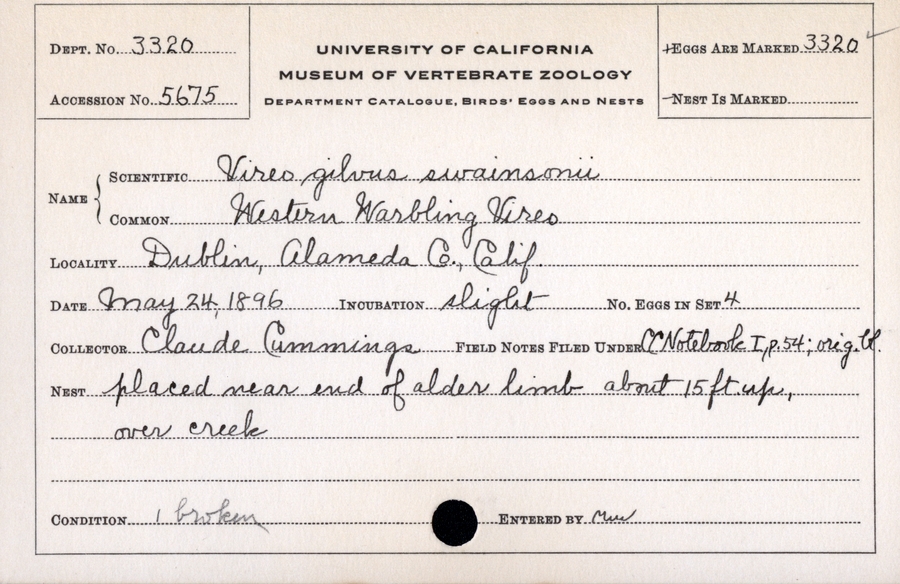 DEPT. NO. 3320
UNIVERSITY OF CALIFORNIA
MUSEUM OF VERTEBRATE ZOOLOGY
DEPARTMENT CATALOGUE, BIRDS' EGGS AND NESTS
+EGGS ARE MARKED 3320
ACCESSION NO. 5675
NEST IS MARKED
NAME
SCIENTIFIC Vireo gilvus swainsonii
COMMON Western Warbling Vireo
LOCALITY Dublin, Alameda Co., Calif.
DATE May 24, 1896 INCUBATION slight NO. EGGS IN SET 4
COLLECTOR Claude Cummings FIELD NOTES FILED UNDER CC Notebook I, p. 54; orig. bl.
NEST placed near end of alder limb about 15 ft. up,
over creek
CONDITION 1 broken ENTERED BY